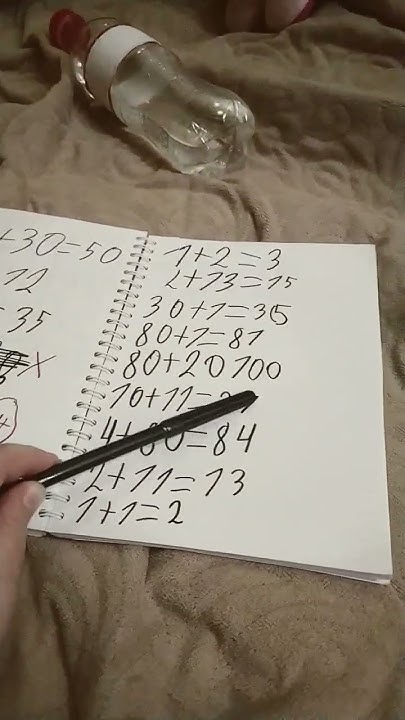 +30=50
12
35
1+2=3
2+13=15
30+1=35
80+1=81
80+20 100
10+11=21
4+80=84
2+11=13
1+1=2